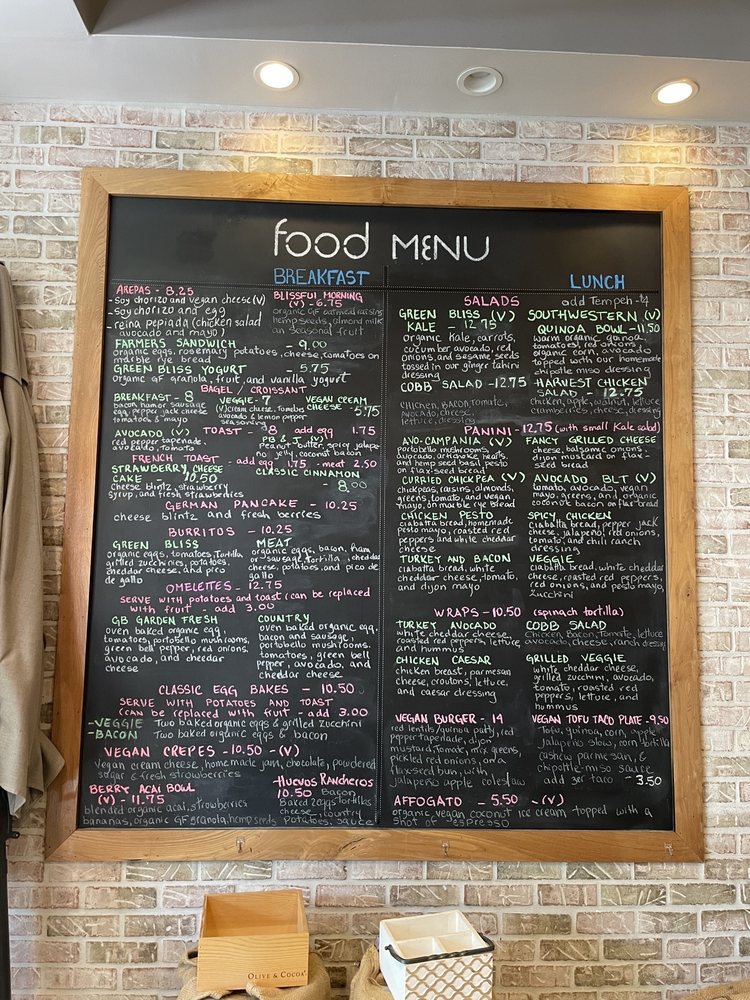 food MENU
BREAKFAST
AREPAS - 8.25
- Soy chorizo and vegan cheese (V)
- soy chorizo and egg
- reina pepiada (chicken salad
avocado and mayo)
BLISSFUL MORNING
(V) - 6.75
organic GF oatmeal, raisins
hemp seeds, almond milk
an seasonal fruit
FARMERS SANDWICH - 9.00
organic eggs, rosemary potatoes, cheese, tomatoes on
marble rye bread
GREEN BLISS YOGURT - 5.75
organic GF granola, fruit, and vanilla yogurt
BAGEL / CROISSANT
BREAKFAST - 8
bacon, ham or sausage
egg, pepper jack cheese
tomatoes & mayo
VEGGIE - 7
(V) cream cheese, tomatoes
avocado & lemon pepper
seasoning
VEGAN CREAM
CHEESE - 5.75
TOAST - 8 add egg 1.75
AVOCADO (V)
red pepper tapenade,
avocado, tomato
PB & J (V)
Peanut butter, spicy jalape
no jelly, coconut bacon
FRENCH TOAST - add egg 1.75 - meat 2.50
STRAWBERRY CHEESE
CAKE - 10.50
cheese blintz, strawberry
syrup, and fresh strawberries
CLASSIC CINNAMON
8.00
GERMAN PANCAKE - 10.25
cheese blintz and fresh berries
BURRITOS - 10.25
GREEN BLISS
organic eggs, tomatoes, tortilla
grilled zucchinies, potatoes,
cheddar cheese, and pico
de gallo
MEAT
organic eggs, bacon, ham
or sausage, tortilla, cheddar
cheese, potatoes, and pico de
gallo
OMELETTES - 12.75
SERVE WITH potatoes and toast (can be replaced
with fruit - add 3.00
GB GARDEN FRESH
oven baked organic egg,
tomatoes, portobello mushrooms,
green bell pepper, red onions,
avocado, and cheddar
cheese
COUNTRY
oven baked organic egg,
bacon and sausage,
portobello mushrooms,
tomatoes, green bell
pepper, avocado, and
cheddar cheese
CLASSIC EGG BAKES - 10.50
SERVE WITH POTATOES AND TOAST
(can be replaced with fruit - add 3.00
- VEGGIE Two baked organic eggs & grilled Zucchini
- BACON Two baked organic eggs & bacon
VEGAN CREPES - 10.50 - (V)
Vegan cream cheese, home made jam, chocolate, powdered
sugar & fresh strawberries
BERRY ACAI BOWL
(V) - 11.75
blended organic acai, strawberries
bananas, organic GF granola, hemp seeds
Huevos Rancheros
10.50 Bacon,
Baked 2 eggs, tortillas
cheese, country
potatoes, sauce
LUNCH
SALADS add Tempeh - $4
GREEN BLISS (V)
KALE - 12.75
organic kale, carrots,
cucumber, avocado, red
onions, and sesame seeds
tossed in our ginger tahini
dressing
SOUTHWESTERN (V)
QUINOA BOWL - 11.50
warm organic quinoa,
tomatoes, red onions,
organic corn, avocado
topped with our homemade
chipotle miso dressing
COBB SALAD - 12.75
CHICKEN, BACON, Tomato,
Avocado, cheese,
lettuce, dressing
HARVEST CHICKEN
SALAD - 12.75
chicken, apple, walnut, lettuce
cranberries, cheese, dressing
PANINI - 12.75 (with small Kale salad)
AVO-CAMPANIA (V)
portobello mushrooms,
avocado, artichoke hearts,
and hemp seed basil pesto
on flax-seed bread
FANCY GRILLED CHEESE
cheese, balsamic onions,
dijon mustard on flax-
seed bread
CURRIED CHICKPEA (V)
chickpeas, raisins, almonds,
greens, tomato, and vegan
mayo, on marble rye bread
AVOCADO BLT (V)
tomato, avocado, vegan
mayo, greens, and organic
coconut bacon on flax-bread
CHICKEN PESTO
ciabatta bread, homemade
pesto mayo, roasted red
peppers and white cheddar
cheese
SPICY CHICKEN
ciabatta bread, pepper jack
cheese, jalapeno, red onions,
tomato, and chili ranch
dressing
TURKEY AND BACON
ciabatta bread, white
cheddar cheese, tomato,
and dijon mayo
VEGGIE
ciabatta bread, white cheddar
cheese, roasted red peppers,
red onions, and pesto mayo,
zucchini
WRAPS - 10.50 (spinach tortilla)
TURKEY AVOCADO
white cheddar cheese,
roasted red peppers, lettuce
and hummus
COBB SALAD
Chicken, Bacon, Tomato, lettuce
avocado, cheese, ranch dressing
CHICKEN CAESAR
chicken breast, parmesan
cheese, croutons, lettuce,
and caesar dressing
GRILLED VEGGIE
white cheddar cheese,
grilled zucchini, avocado,
tomato, roasted red
peppers, lettuce, and
hummus
VEGAN BURGER - 14
red lentils/quinoa patty, red
pepper tapenade, dijon
mustard, tomato, mix greens,
pickled red onions, on a
flaxseed bun, with
jalapeño apple coleslaw
VEGAN TOFU TACO PLATE - 9.50
Tofu, quinoa, corn, apple
jalapeño slow, corn tortilla
cashew parmesan, &
chipotle-miso sauce
add 3er taco - 3.50
AFFOGATO - 5.50 - (V)
organic, vegan coconut ice cream topped with a
shot of espresso
OLIVE & COCOA